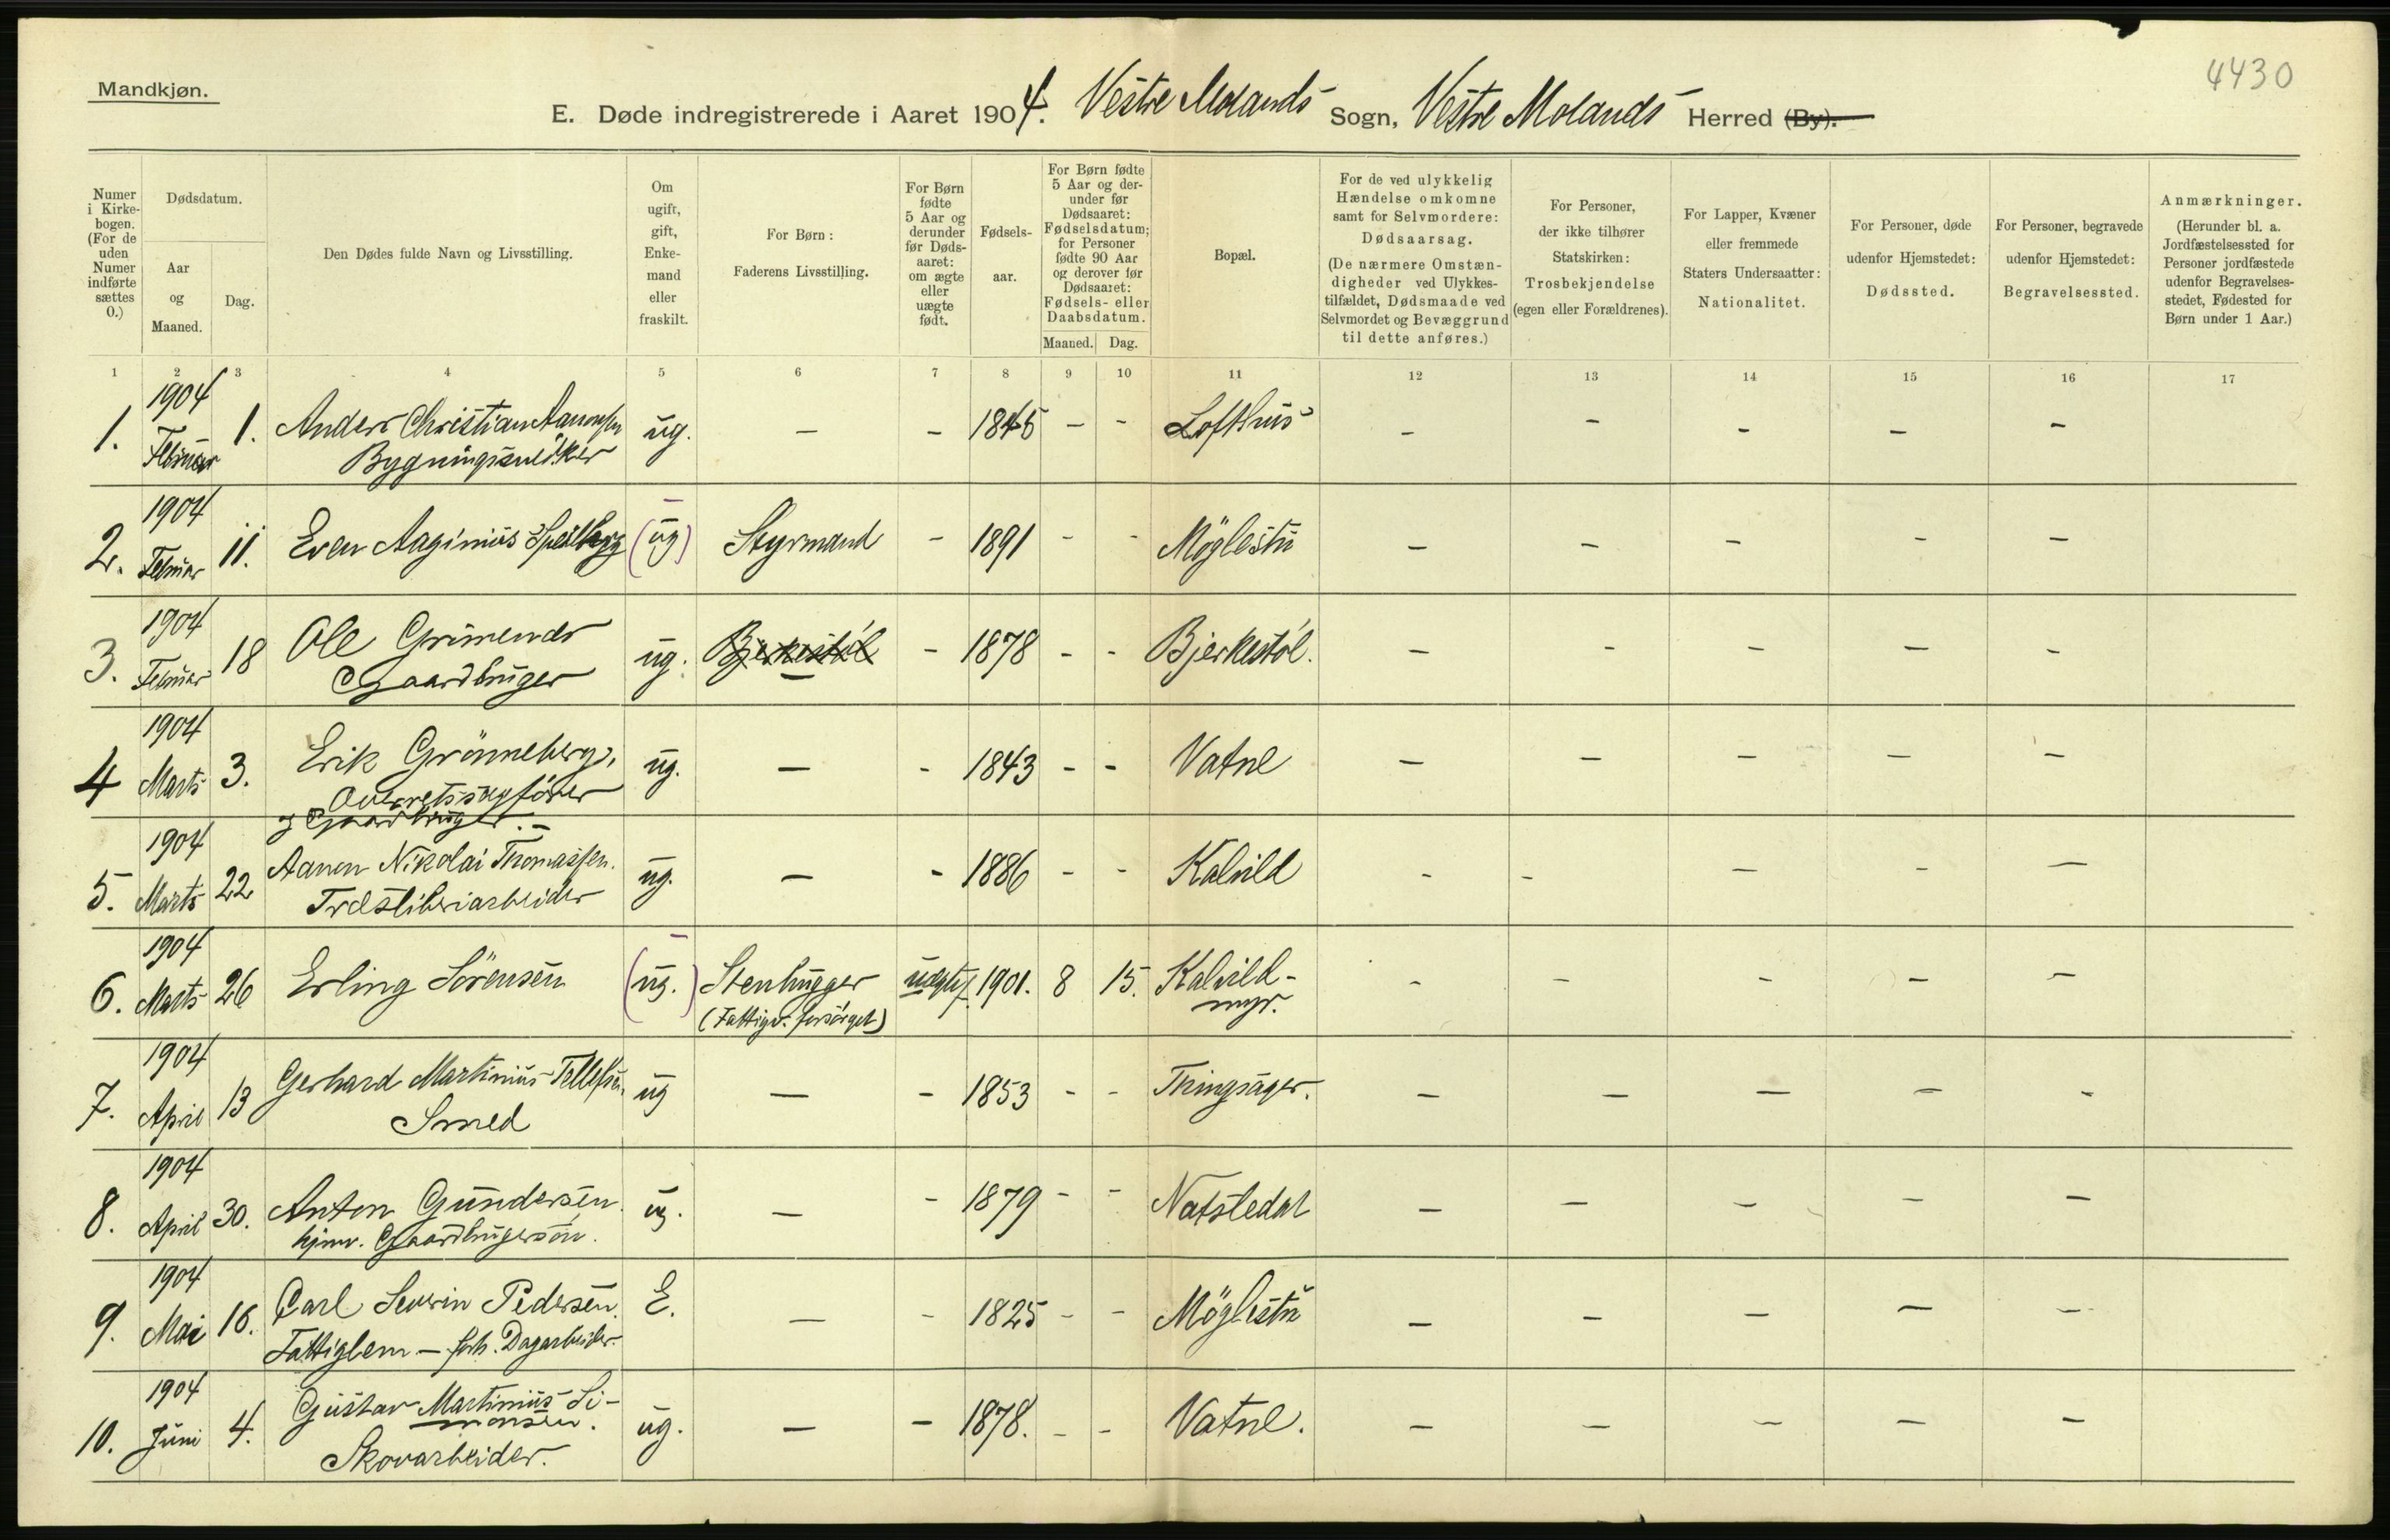 Mandkjøn.
4430
E. Døde indregistrerede i Aaret 1904. Vestre Molands Sogn, Vestre Molands Herred (By).
Numer i Kirkebogen. (For de uden Numer indførte sættes 0.)
Dødsdatum.
Aar og Maaned.
Dag.
Den Dødes fulde Navn og Livsstilling.
Om ugift, gift, Enkemand eller fraskilt.
For Børn: Faderens Livsstilling.
For Børn fødte 5 Aar og derunder før Dødsaaret: om ægte eller uægte født.
Fødselsaar.
For Børn fødte 5 Aar og derunder før Dødsaaret: Fødselsdatum; for Personer fødte 90 Aar og derover før Dødsaaret: Fødsels- eller Daabsdatum.
Maaned. Dag.
Bopæl.
For de ved ulykkelig Hændelse omkomne samt for Selvmordere: Dødsaarsag. (De nærmere Omstændigheder ved Ulykkestilfældet, Dødsmaade ved Selvmordet og Bevæggrund til dette anføres.)
For Personer, der ikke tilhører Statskirken: Trosbekjendelse (egen eller Forældrenes).
For Lapper, Kvæner eller fremmede Staters Undersaatter: Nationalitet.
For Personer, døde udenfor Hjemstedet: Dødssted.
For Personer, begravede udenfor Hjemstedet: Begravelsessted.
Anmærkninger. (Herunder bl. a. Jordfæstelsessted for Personer jordfæstede udenfor Begravelsesstedet, Fødested for Børn under 1 Aar.)
1 2 3 4 5 6 7 8 9 10 11 12 13 14 15 16 17
1. 1904 Februar 1. Anders Christian Aanonsen Bygningssnedker ug. — - 1845 - - Lofthus - - - - -
2. 1904 Februar 11. Even Aaginius (ug) Styrmand - 1891 - - Möglestu - - - - -
3. 1904 Februar 18 Ole Grimends Gaardbruger ug. Bjerkestöl — - 1878 - - Bjerkestöl. - - - - -
4 1904 Marts 3. Erik Grönneberg, Overretssagförer og Gaardbruger.- ug. — - 1843 - - Vatne - - - - -
5. 1904 Marts 22 Aanon Nikolai Thomassen. Træsliberiarbeider ug. — - 1886 - - Kalvild - - - - -
6. 1904 Marts 26 Erling Sörensen (ug.) Stenhugger (Fattigv. forsörget) uægte f. 1901. 8 15. Kalvild-myr. - - - - -
7. 1904 April 13 Gerhard Martinius Tellefsen. Smed ug — - 1853 - - Thingsager. - - - - -
8. 1904 April 30. Anton Gundersen. hjmv. Gaardbrugersön. ug. — - 1879 - - Natvledal - - - - -
9. 1904 Mai 16. Carl Severin Pedersen. Fattiglem — forh. Dagarbeider. E. — - 1825 - - Möglestu - - - - -
10. 1904 Juni 4. Gustav Martinius Si-monsen. Skovarbeider. ug. — - 1878. - - Vatne. - - - - -